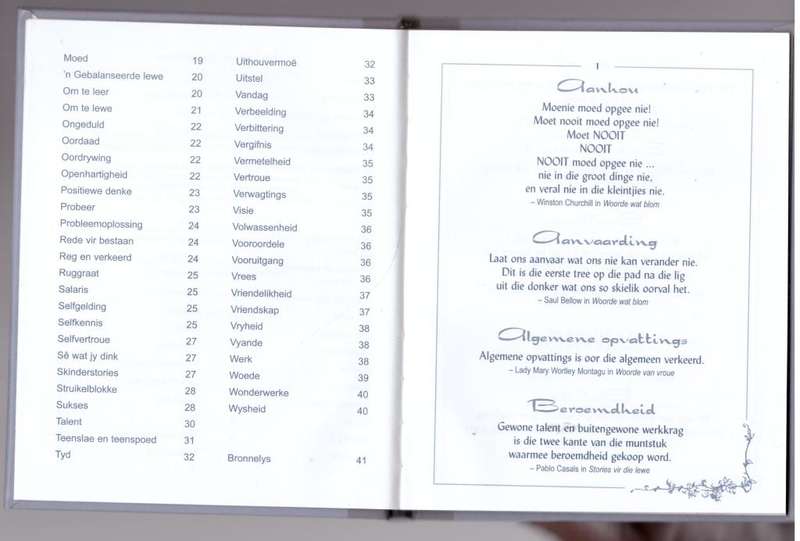 Moed 19
'n Gebalanseerde lewe 20
Om te leer 20
Om te lewe 21
Ongeduld 22
Oordaad 22
Oordrywing 22
Openhartigheid 22
Positiewe denke 23
Probeer 23
Probleemoplossing 24
Rede vir bestaan 24
Reg en verkeerd 24
Ruggraat 25
Salaris 25
Selfgelding 25
Selfkennis 25
Selfvertroue 27
Sê wat jy dink 27
Skinderstories 27
Struikelblokke 28
Sukses 28
Talent 30
Teenslae en teenspoed 31
Tyd 32
Uithouvermoë 32
Uitstel 33
Vandag 33
Verbeelding 34
Verbittering 34
Vergifnis 34
Vermetelheid 35
Vertroue 35
Verwagtings 35
Visie 35
Volwassenheid 36
Vooroordele 36
Vooruitgang 36
Vrees 36
Vriendelikheid 37
Vriendskap 37
Vryheid 38
Vyande 38
Werk 38
Woede 39
Wonderwerke 40
Wysheid 40
Bronnelys 41
1
Aanhou
Moenie moed opgee nie!
Moet nooit moed opgee nie!
Moet NOOIT
NOOIT
NOOIT moed opgee nie ...
nie in die groot dinge nie,
en veral nie in die kleintjies nie.
– Winston Churchill in Woorde wat blom
Aanvaarding
Laat ons aanvaar wat ons nie kan verander nie.
Dit is die eerste tree op die pad na die lig
uit die donker wat ons so skielik oorval het.
– Saul Bellow in Woorde wat blom
Algemene opvattings
Algemene opvattings is oor die algemeen verkeerd.
– Lady Mary Wortley Montagu in Woorde van vroue
Beroemdheid
Gewone talent en buitengewone werkkrag
is die twee kante van die muntstuk
waarmee beroemdheid gekoop word.
– Pablo Casals in Stories vir die lewe